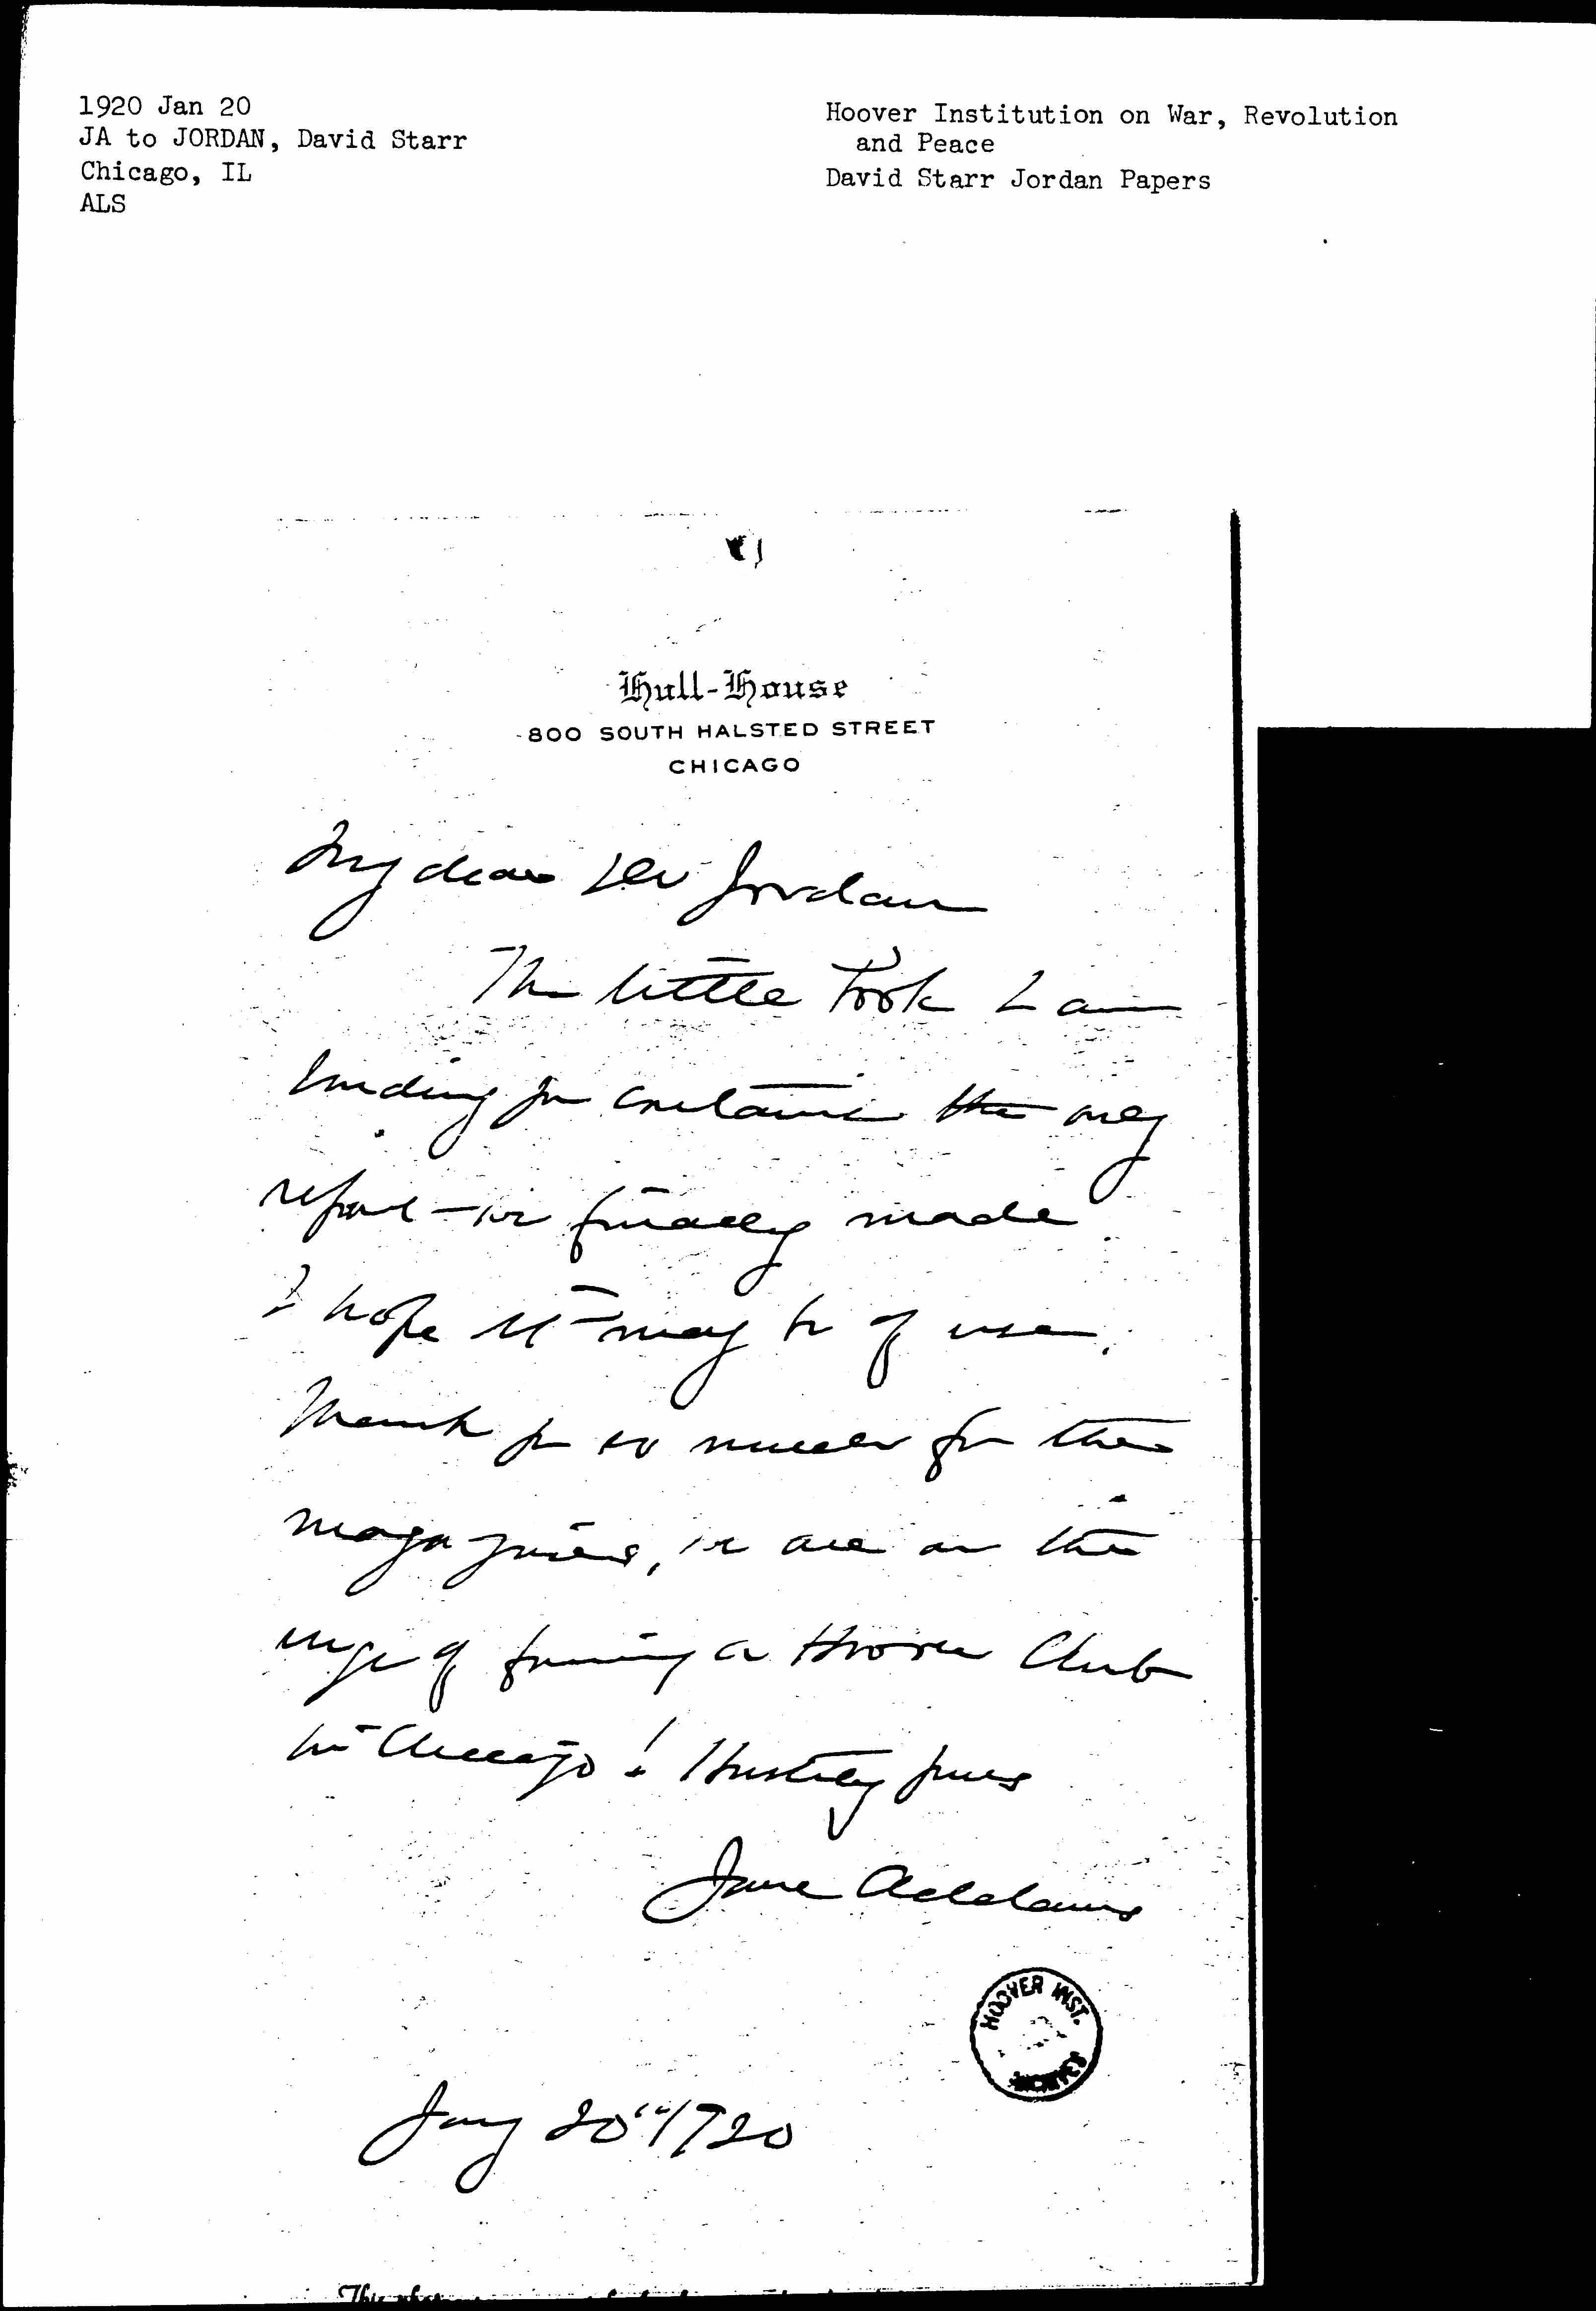 1920 Jan 20
JA to JORDAN, David Starr
Chicago, IL
ALS
Hoover Institution on War, Revolution
and Peace
David Starr Jordan Papers
Hull-House
800 SOUTH HALSTED STREET
CHICAGO
My dear Dr Jordan
The little book I am
sending you contains the only
report we finally made
I hope it may be of use.
Thank you so much for the
magazines, we are on the
verge of forming a Hoover Club
in Chicago! Hastily yours
Jane Addams
HOOVER INST.
ARCHIVES
Jany 20" 1920